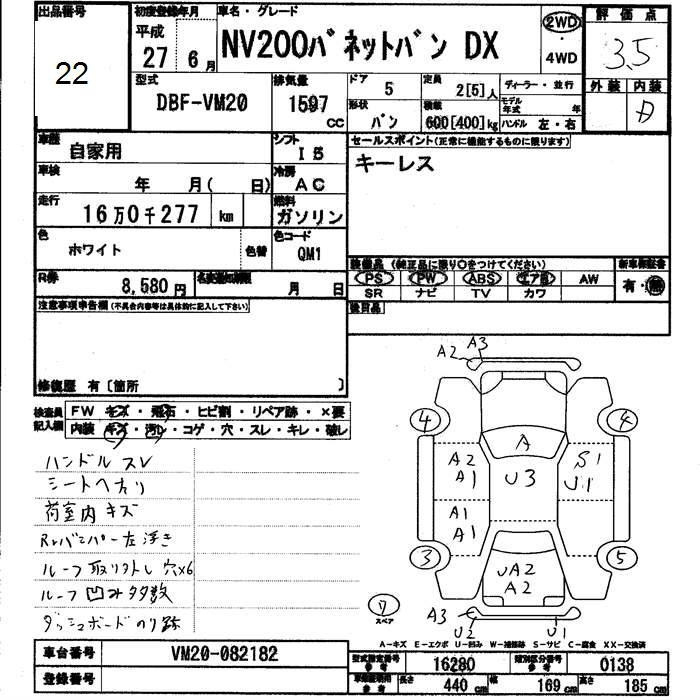 出品番号
22
初度登録年月
平成
27年 6月
車名・グレード
NV200バネットバン DX
2WD
4WD
評価点
3.5
外装 内装
D
型式
DBF-VM20
排気量
1597
CC
ドア
5
定員
2[5]人
形状
バン
積載
600[400]kg
ディーラー・並行
モデル年式 年
ハンドル 左・右
車歴
自家用
シフト
I5
車検
年 月( 日)
冷房
AC
走行
16万0千277 km
燃料
ガソリン
色
ホワイト
色替
色コード
QM1
セールスポイント(正常に機能するものに限ります)
キーレス
R券
8,580円
名変期限
月 日
装備品 (純正品に限り〇をつけてください)
PS PW ABS エアB AW
SR ナビ TV カワ
新車保証書
有・無
後日品
注意事項申告欄(不具合内容等は具体的に記入して下さい)
修復歴 有〔箇所 〕
検査員記入欄
FW キズ・飛石・ヒビ割・リペア跡・×要
内装 キズ・汚レ・コゲ・穴・スレ・キレ・破レ
ハンドル スレ
シートヘタリ
荷室内 キズ
Rrバンパー左浮き
ルーフ 取り外し 穴×6
ルーフ 凹み多数
ダッシュボード のり跡
A2 A3
4 4
A
A2
A1
U3
S1
U1
A1
A1
3 5
UA2
A2
7
スペア
A3
U2 U1
A-キズ E-エクボ U-凹み W-補修跡 S-サビ C-腐食 XX-交換済
車台番号
VM20-082182
登録番号
型式指定番号
参考
16280
類別区分番号
参考
0138
車検証明用
参考
長さ
440 cm
幅
169 cm
高さ
185 cm